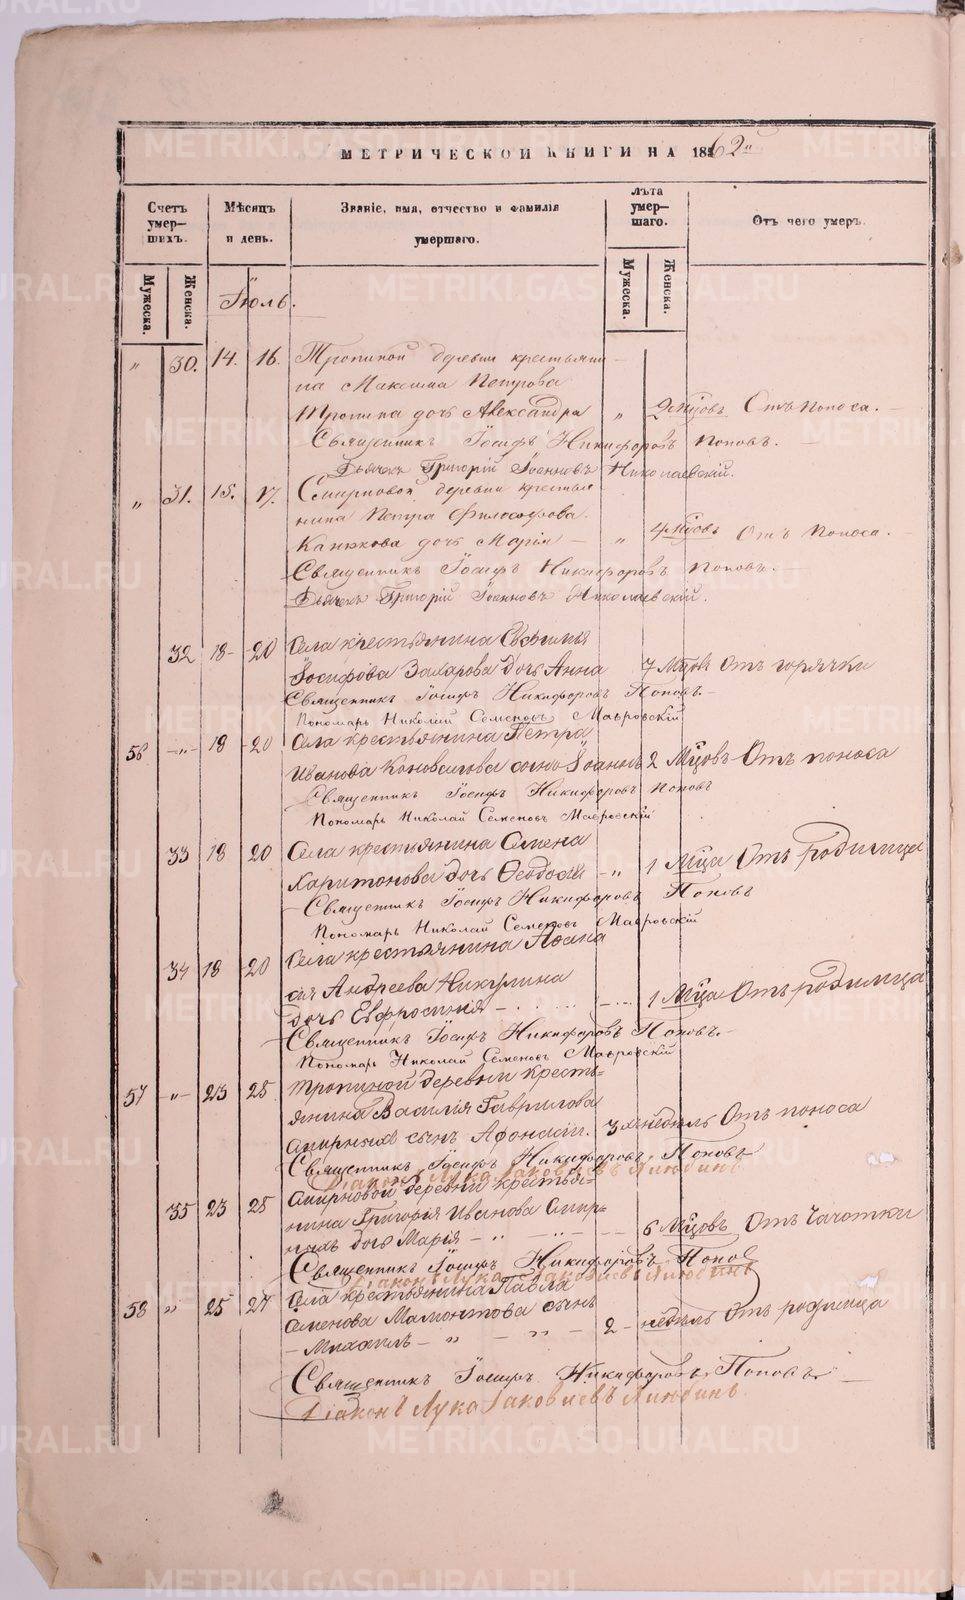 МЕТРИЧЕСКОЙ КНИГИ НА 1862й
Счетъ умер-шихъ.
Мѣсяцъ и день.
Званіе, имя, отчество и фамилія умершаго.
Лѣта умер-шаго.
Отъ чего умеръ.
Мужеска.
Женска.
Мужеска.
Женска.
Іюль.
„ 30. 14. 16. Тропиной деревни крестьяни-
на Максима Петрова
Тропина дочь Александра „ 9 мцовъ Отъ поноса.
Священникъ Іосифъ Никифоровъ Поповъ.
Дьячекъ Григорій Іоанновъ Николаевскій.
„ 31. 15. 17. Смирновой деревни крестья-
нина Петра Философова
Канюкова дочь Марія „ 4 мцовъ Отъ поноса.
Священникъ Іосифъ Никифоровъ Поповъ.
Дьячекъ Григорій Іоанновъ Николаевскій.
32 18 20 Села крестьянина Евфимія
Іосифова Захарова дочь Анна 7 Мцовъ Отъ горячки
Священникъ Іосифъ Никифоровъ Поповъ
Пономарь Николай Семеновъ Мавровскій
56 „ 18 20 Села крестьянина Петра
Иванова Коновалова сынъ Іоаннъ 2 Мцовъ Отъ поноса
Священникъ Іосифъ Никифоровъ Поповъ
Пономарь Николай Семеновъ Мавровскій
33 18 20 Села крестьянина Семена
Харитонова дочь Ѳеодосія „ 1 Мца Отъ родимца
Священникъ Іосифъ Никифоровъ Поповъ
Пономарь Николай Семеновъ Мавровскій
34 18 20 Села крестьянина Аѳана
сія Андреева Никулина
дочь Евфросинія 1 Мца Отъ родимца
Священникъ Іосифъ Никифоровъ Поповъ.
Пономарь Николай Семеновъ Мавровскій
57 „ 23 25 Тропиной деревни Кресть=
янина Василія Гаврилова
Смирныхъ сынъ Афонасій. 3 недѣль Отъ поноса
Священникъ Іосифъ Никифоровъ Поповъ
Діаконъ Лука Іаковлевъ
35 23 25 Смирновой деревни крестья=
нина Григорія Иванова Смир=
ныхъ дочь Марія 6 Мцовъ Отъ Чахотки
Священникъ Іосифъ Никифоровъ Поповъ
Діаконъ Лука Іаковлевъ
58 „ 25 27 Села крестьянина Павла
Семенова Мамонтова сынъ
Михаилъ 2 недѣль Отъ родимца
Священникъ Іосифъ Никифоровъ Поповъ
Діаконъ Лука Іаковлевъ
METRIKI.GASO-URAL.RU